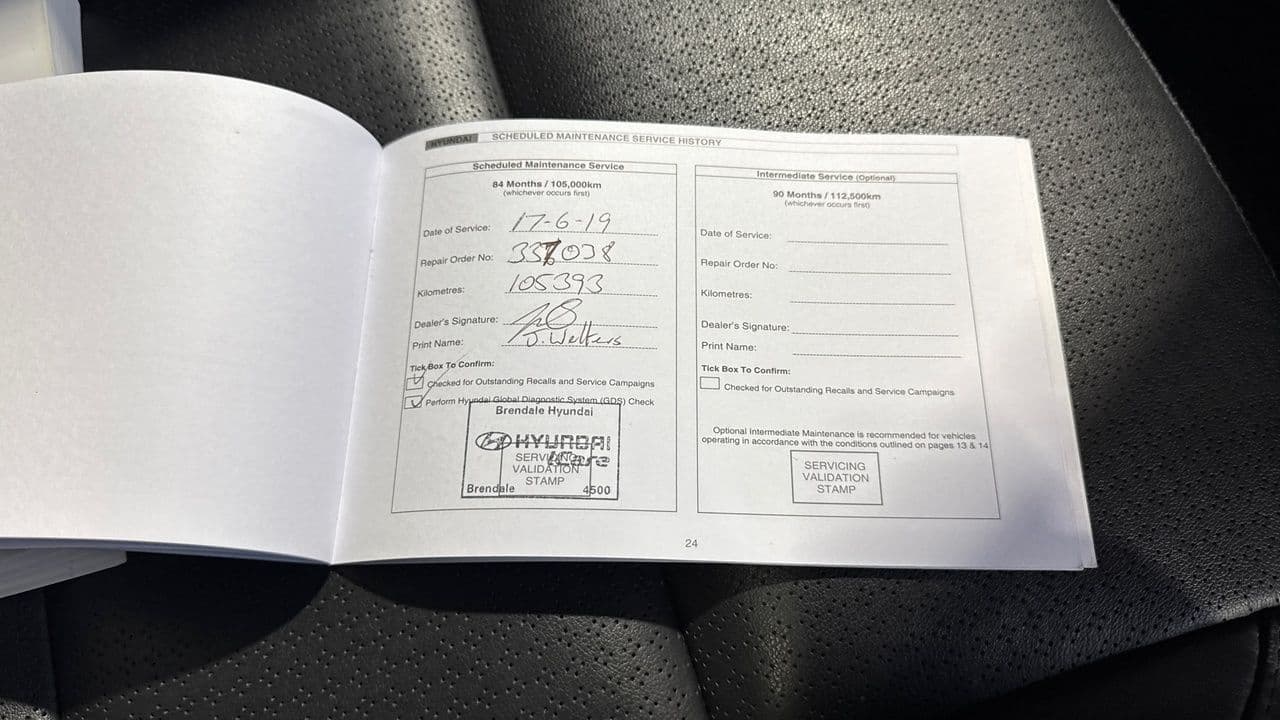 HYUNDAI SCHEDULED MAINTENANCE SERVICE HISTORY
Scheduled Maintenance Service
84 Months / 105,000km
(whichever occurs first)
Date of Service: 17-6-19
Repair Order No: 337038
Kilometres: 105393
Dealer's Signature:
Print Name: J. Welters
Tick Box To Confirm:
Checked for Outstanding Recalls and Service Campaigns
Perform Hyundai Global Diagnostic System (GDS) Check
Brendale Hyundai
HYUNDAI
iCare
SERVICING
VALIDATION
STAMP
Brendale 4500
Intermediate Service (Optional)
90 Months / 112,500km
(whichever occurs first)
Date of Service:
Repair Order No:
Kilometres:
Dealer's Signature:
Print Name:
Tick Box To Confirm:
Checked for Outstanding Recalls and Service Campaigns
Optional Intermediate Maintenance is recommended for vehicles
operating in accordance with the conditions outlined on pages 13 & 14
SERVICING
VALIDATION
STAMP
24